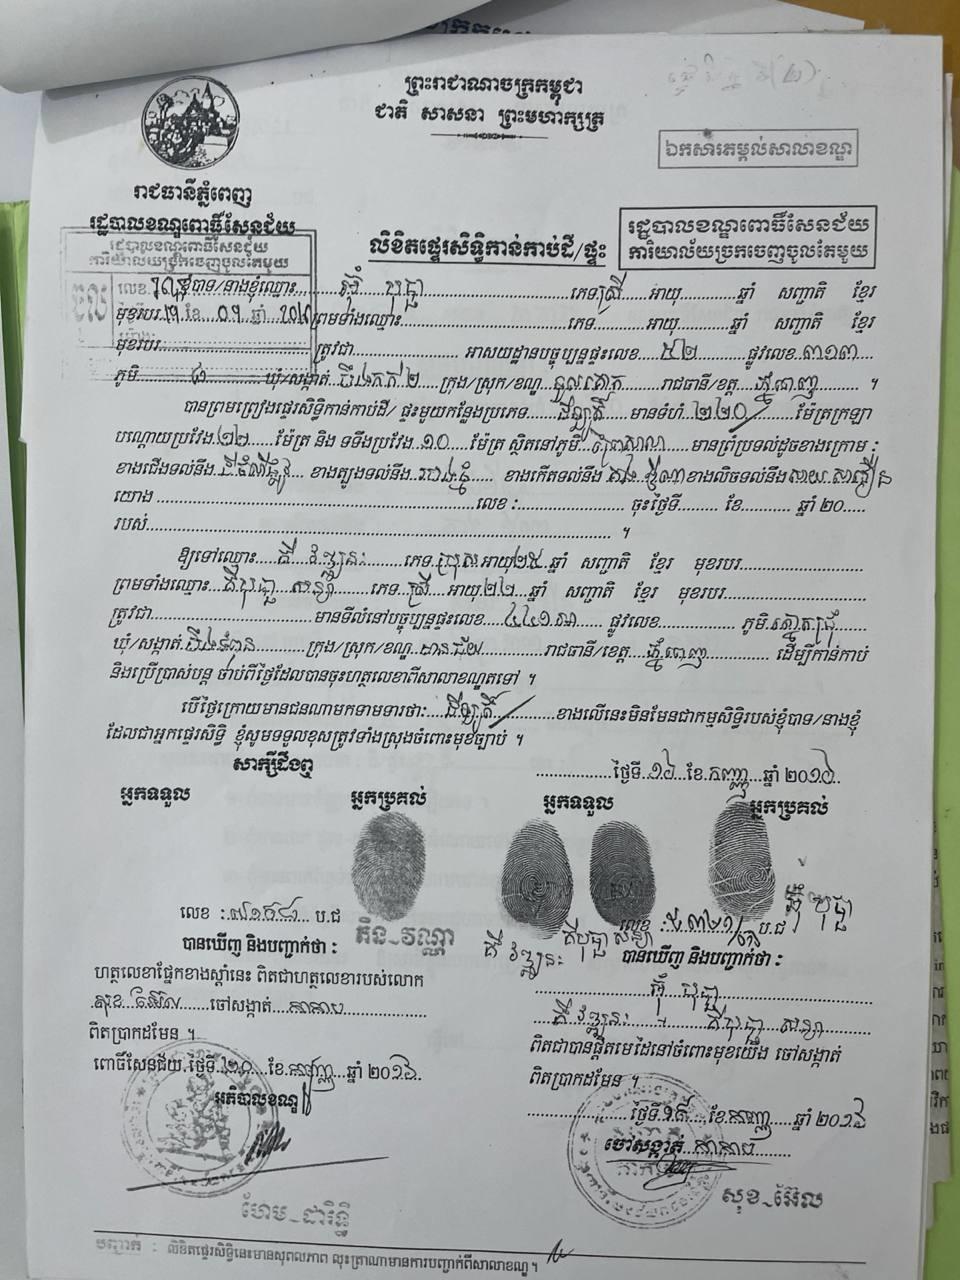 ព្រះរាជាណាចក្រកម្ពុជា
ជាតិ សាសនា ព្រះមហាក្សត្រ
ឯកសារតម្កល់សាលាខណ្ឌ
រាជធានីភ្នំពេញ
រដ្ឋបាលខណ្ឌពោធិ៍សែនជ័យ
រដ្ឋបាលខណ្ឌពោធិ៍សែនជ័យ
ការិយាល័យច្រកចេញចូលតែមួយ
លិខិតផ្ទេរសិទ្ធិកាន់កាប់ដី/ផ្ទះ
រដ្ឋបាលខណ្ឌពោធិ៍សែនជ័យ
ការិយាល័យច្រកចេញចូលតែមួយ
លេខ បាទ/នាងខ្ញុំឈ្មោះ ភេទ ស្រី អាយុ ឆ្នាំ សញ្ជាតិ ខ្មែរ
មុខរបរ ព្រមទាំងឈ្មោះ ភេទ អាយុ ឆ្នាំ សញ្ជាតិ ខ្មែរ
មុខរបរ ត្រូវជា អាសយដ្ឋានបច្ចុប្បន្នផ្ទះលេខ ៥២ ផ្លូវលេខ ៣១៣
ភូមិ ឃុំ/សង្កាត់ បឹងកក់ ២ ក្រុង/ស្រុក/ខណ្ឌ ទួលគោក រាជធានី/ខត្ត ភ្នំពេញ ។
បានព្រមព្រៀងផ្ទេរសិទ្ធិកាន់កាប់ដី/ ផ្ទះមួយកន្លែងប្រភេទ ដីឡូត៍ មានទំហំ ២២០ ម៉ែត្រក្រឡា
បណ្តោយប្រវែង ២២ ម៉ែត្រ និង ទទឹងប្រវែង ១០ ម៉ែត្រ ស្ថិតនៅភូមិ មានព្រំប្រទល់ដូចខាងក្រោម :
ខាងជើងទល់នឹង ខាងត្បូងទល់នឹង ខាងកើតទល់នឹង ខាងលិចទល់នឹង
យោង លេខ : ចុះថ្ងៃទី ខែ ឆ្នាំ ២០
របស់ ។
ឱ្យទៅឈ្មោះ គី វឌ្ឍនៈ ភេទ ប្រុស អាយុ ២៥ ឆ្នាំ សញ្ជាតិ ខ្មែរ មុខរបរ
ព្រមទាំងឈ្មោះ គីបុប្ផា សន្យា ភេទ ស្រី អាយុ ២២ ឆ្នាំ សញ្ជាតិ ខ្មែរ មុខរបរ
ត្រូវជា មានទីលំនៅបច្ចុប្បន្នផ្ទះលេខ ផ្លូវលេខ ភូមិ
ឃុំ/សង្កាត់ បឹងទំពុន ក្រុង/ស្រុក/ខណ្ឌ មានជ័យ រាជធានី/ខេត្ត ភ្នំពេញ ដើម្បីកាន់កាប់
និងប្រើប្រាស់បន្ត ចាប់ពីថ្ងៃដែលបានចុះហត្ថលេខាពីសាលាខណ្ឌតទៅ ។
បើថ្ងៃក្រោយមានជនណាមកទាមទារថា: ដីឡូត៍ ខាងលើនេះមិនមែនជាកម្មសិទ្ធិរបស់ខ្ញុំបាទ/នាងខ្ញុំ
ដែលជាអ្នកផ្ទេរសិទ្ធិ ខ្ញុំសូមទទួលខុសត្រូវទាំងស្រុងចំពោះមុខច្បាប់ ។
សាក្សីដឹងឮ
ថ្ងៃទី ១៦ ខែ កញ្ញា ឆ្នាំ ២០១៦
អ្នកទទួល អ្នកប្រគល់ អ្នកទទួល អ្នកប្រគល់
លេខ : ប.ជ
ភិន-វណ្ណា
គី វឌ្ឍនៈ គីបុប្ផា សន្យា
លេខ : ប.ជ
បានឃើញ និងបញ្ជាក់ថា : បានឃើញ និងបញ្ជាក់ថា :
ហត្ថលេខាផ្នែកខាងស្តាំនេះ ពិតជាហត្ថលេខារបស់លោក
សុខ អ៊ែល ចៅសង្កាត់ កាកាប
គី វឌ្ឍនៈ គីបុប្ផា សន្យា
ពិតប្រាកដមែន ។
ពិតជាបានផ្តិតមេដៃនៅចំពោះមុខយើង ចៅសង្កាត់
ពិតប្រាកដមែន ។
ពោធិ៍សែនជ័យ ថ្ងៃទី ២០ ខែ កញ្ញា ឆ្នាំ ២០១៦
អភិបាលខណ្ឌ
ថ្ងៃទី ១៩ ខែ កញ្ញា ឆ្នាំ ២០១៦
ចៅសង្កាត់ កាកាប
ហែម-ដារិទ្ធិ
សុខ-អ៊ែល
បញ្ជាក់ : លិខិតផ្ទេរសិទ្ធិនេះមានសុពលភាព លុះត្រាណាមានការបញ្ជាក់ពីសាលាខណ្ឌ ។